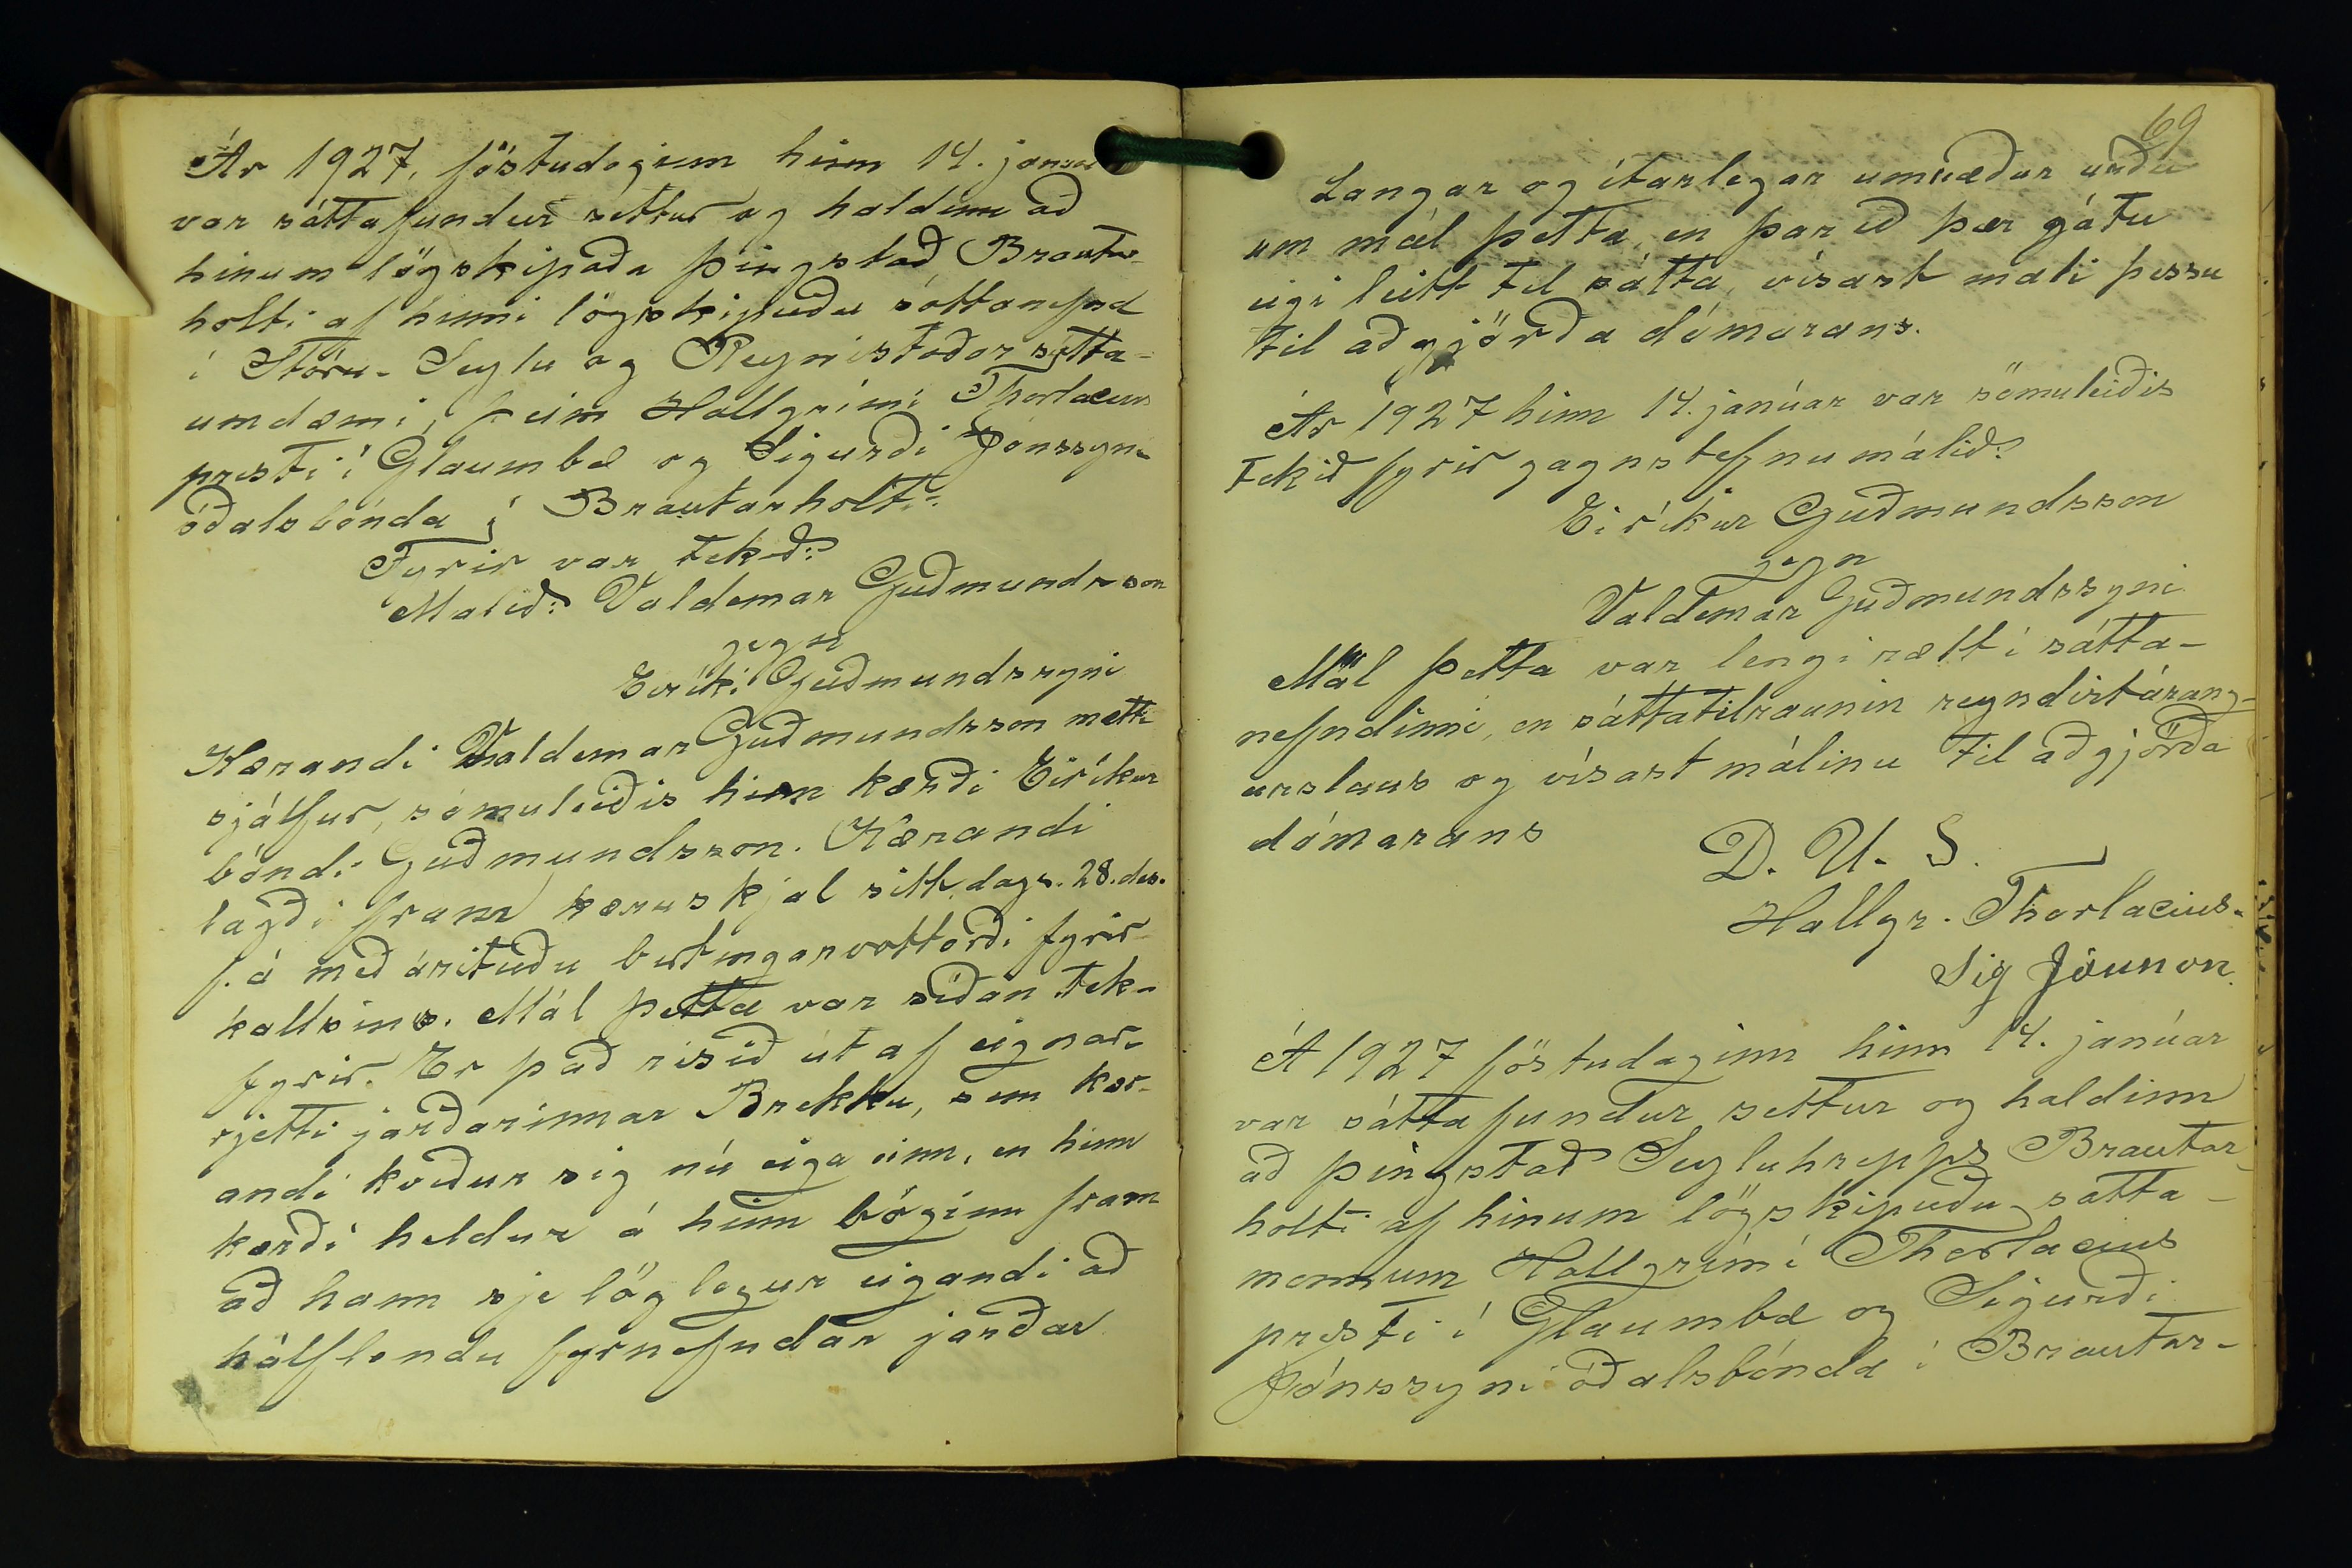 Ár 1927, föstudaginn hinn 14. janúar
var sáttafundur settur og haldinn að
hinum lögskipaða þingstað Brautar-
holti af hinni lögskipuðu sáttanefnd
í Stóru-Seylu og Reynistaðar sátta-
umdæmi, þeim Hallgrími Thorlacius
presti í Glaumbæ og Sigurði Jónssyni
óðalsbónda í Brautarholti.
Fyrir var tekið:
Malið: Valdemar Guðmundsson
gegn
Eiríki Guðmundssyni
Kærandi Valdemar Guðmundsson mætti
sjálfur, sömuleiðis hinn kærði Eiríkur
bóndi Guðmundsson. Kærandi
lagði fram kæruskjal sitt, dags. 28. des.
f. á með árituðu birtingarvottorði fyrir-
kallsins. Mál þetta var síðan tek-
fyrir. Er það risið út af eignar-
rjetti jarðarinnar Brekku, sem kær-
andi kveður sig nú eiga einn, en hinn
kærði heldur á hinn bóginn fram
að hann sje löglegur eigandi að
hálflendu fyrnefndar jarðar
69
Langar og ítarlegar umræður urðu
um mál þetta, en þar eð þær gátu
eigi leitt til sátta, vísast máli þessu
til aðgjörða dómarans.
Ár 1927 hinn 14. janúar var sömuleiðis
tekið fyrir gagnstefnumálið:
Eiríkur Guðmundsson
gegn
Valdemar Guðmundssyni
Mál þetta var lengi rætt í sátta-
nefndinni, en sáttatilraunin reyndist árang-
urslaus og vísast málinu til aðgjörða
dómarans
D. U. S.
Hallgr. Thorlacius.
Sig Jónsson.
Á 1927 föstudaginn hinn 14. janúar
var sáttafundur settur og haldinn
að þingstað Seyluhrepps Brautar-
holti af hinum lögskipuðu sátta-
mönnum Hallgrími Thorlacius
presti í Glaumbæ og Sigurði
Jónssyni óðalsbónda í Brautar-